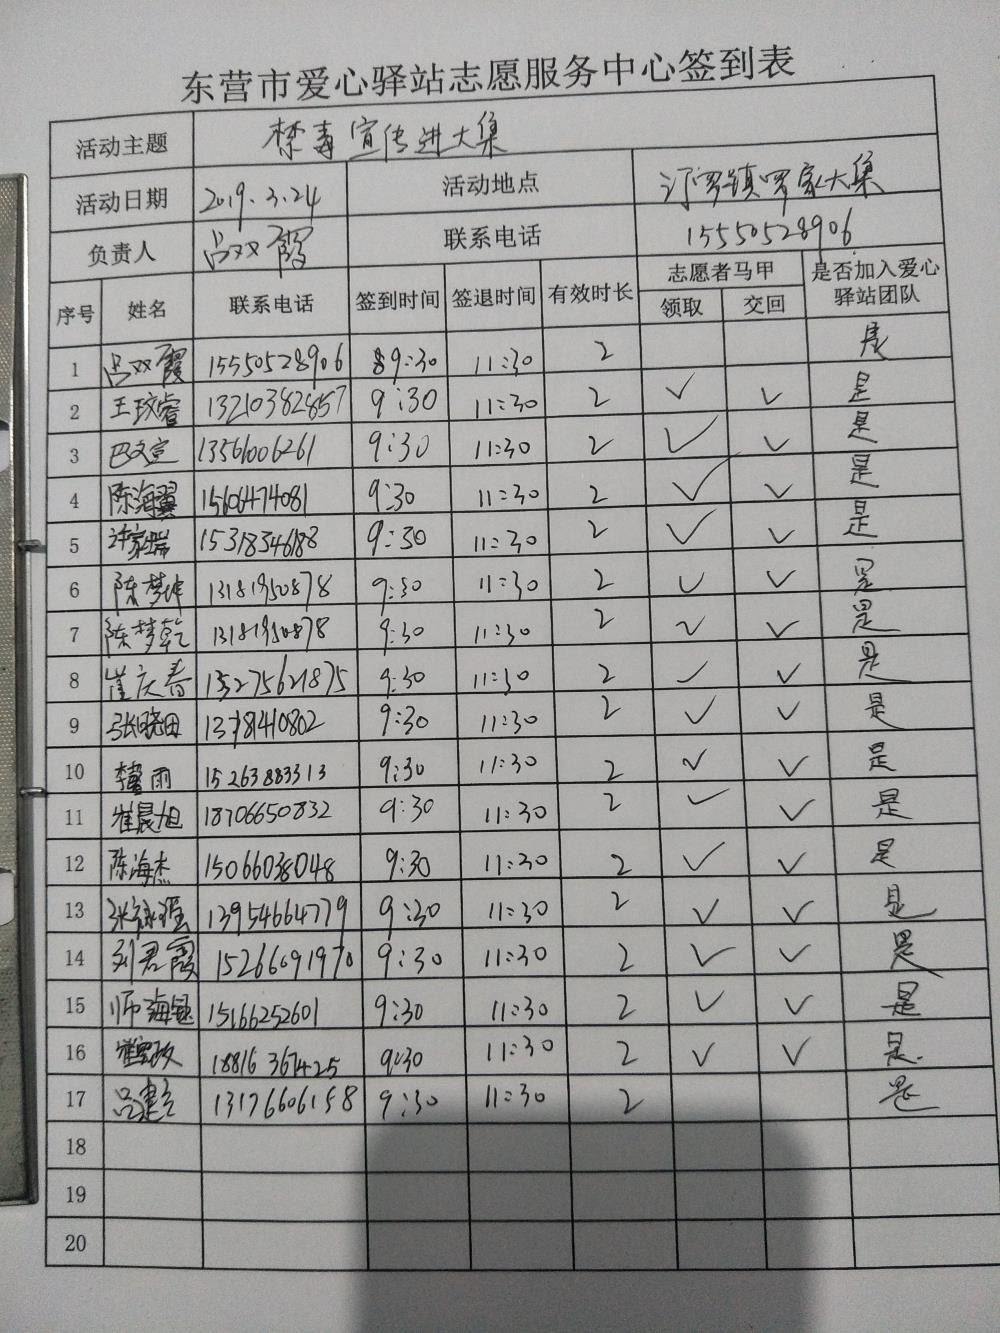 东营市爱心驿站志愿服务中心签到表
活动主题 禁毒宣传进大集
活动日期 2019.3.24 活动地点 汀罗镇罗家大集
负责人 吕双霞 联系电话 15550528906
序号 姓名 联系电话 签到时间 签退时间 有效时长 志愿者马甲 领取 交回 是否加入爱心驿站团队
1 吕双霞 15550528906 9:30 11:30 2 是
2 王玟睿 13210382857 9:30 11:30 2 ✓ ✓ 是
3 巴文宣 13561006261 9:30 11:30 2 ✓ ✓ 是
4 陈海翼 15606474081 9:30 11:30 2 ✓ ✓ 是
5 许家瑞 15318346188 9:30 11:30 2 ✓ ✓ 是
6 陈梦坤 13181950878 9:30 11:30 2 ✓ ✓ 是
7 陈梦乾 13181950878 9:30 11:30 2 ✓ ✓ 是
8 崔庆春 15275621875 9:30 11:30 2 ✓ ✓ 是
9 张晓田 9:30 11:30 2 ✓ ✓ 是
10 雨 15263883313 9:30 11:30 2 ✓ ✓ 是
11 崔晨旭 18706650832 9:30 11:30 2 ✓ ✓ 是
12 陈海杰 15066038048 9:30 11:30 2 ✓ ✓ 是
13 13954664779 9:30 11:30 2 ✓ ✓ 是
14 刘君霞 15266091970 9:30 11:30 2 ✓ ✓ 是
15 师海 15166252601 9:30 11:30 2 ✓ ✓ 是
16 18816367425 9:30 11:30 2 ✓ ✓ 是
17 吕建 13176606158 9:30 11:30 2 是
18
19
20